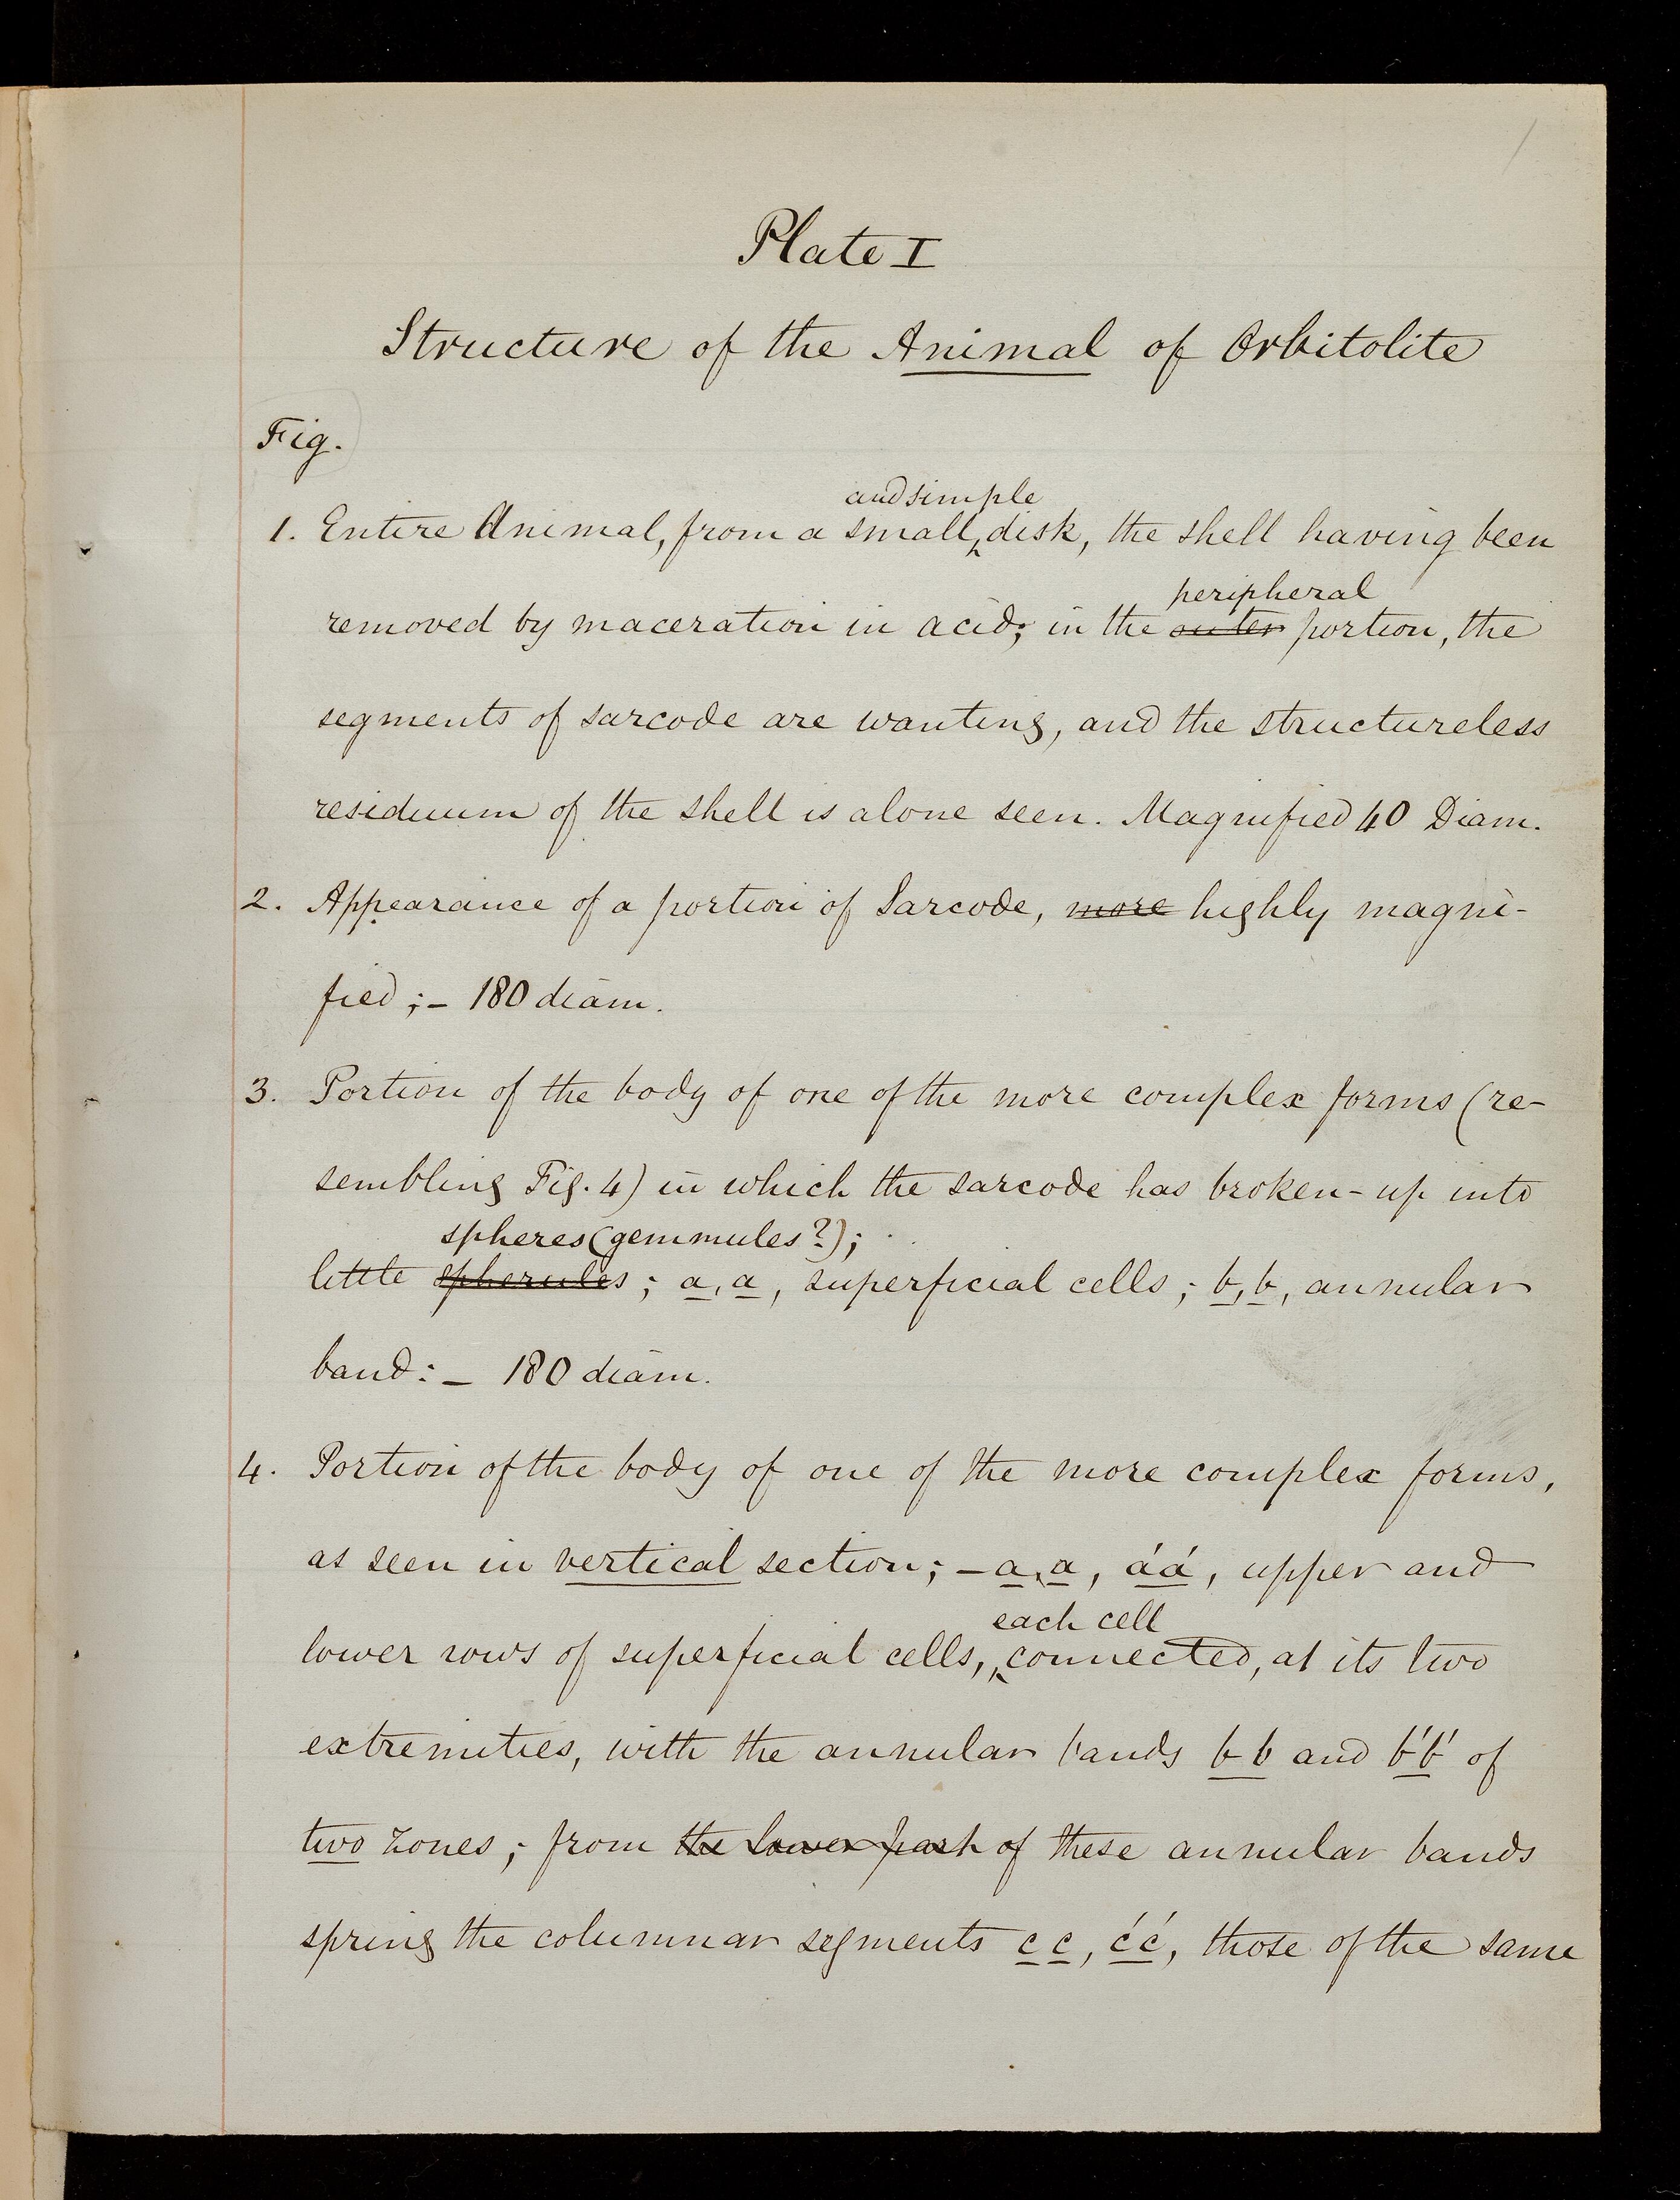 Plate I
Structure of the Animal of Orbitolite
Fig.
and simple
1. Entire Animal, from a small, disk, the shell having been
peripheral
removed by maceration in acid; in the outer portion, the
segments of sarcode are wanting, and the structureless
residuum of the shell is alone seen. Magnified 40 Diam.
2. Appearance of a portion of Sarcode, more highly magni-
fied; – 180 diam.
3. Portion of the body of one of the more complex forms (re-
sembling Fig. 4) in which the sarcode has broken-up into
spheres (gemmules?);
little spherules; a, a, superficial cells; b, b, annular
band: – 180 diam.
4. Portion of the body of one of the more complex forms,
as seen in vertical section; – a, a, a′a′, upper and
each cell
lower rows of superficial cells, connected, at its two
extremities, with the annular bands b b and b′b′ of
two zones; from the lower part of these annular bands
spring the columnar segments c c, c′c′, those of the same